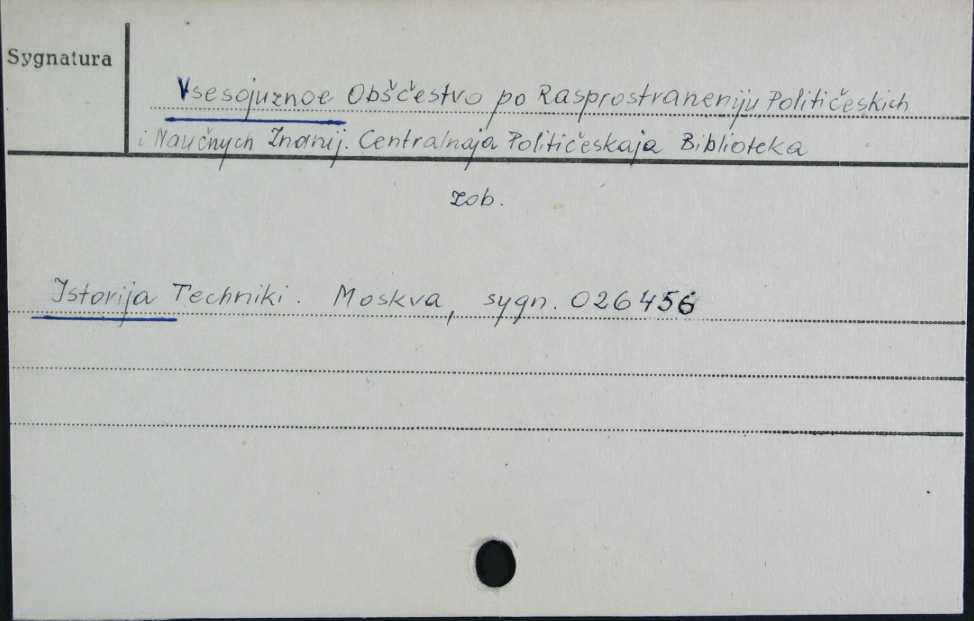 Sygnatura
Vsesojuznoe Obščestvo po Rasprostraneniju Politič̌eskich
i Naučnych Znanij. Centralnaja Politič̌eskaja Biblioteka
zob.
Istorija Techniki. Moskva, sygn. 026456